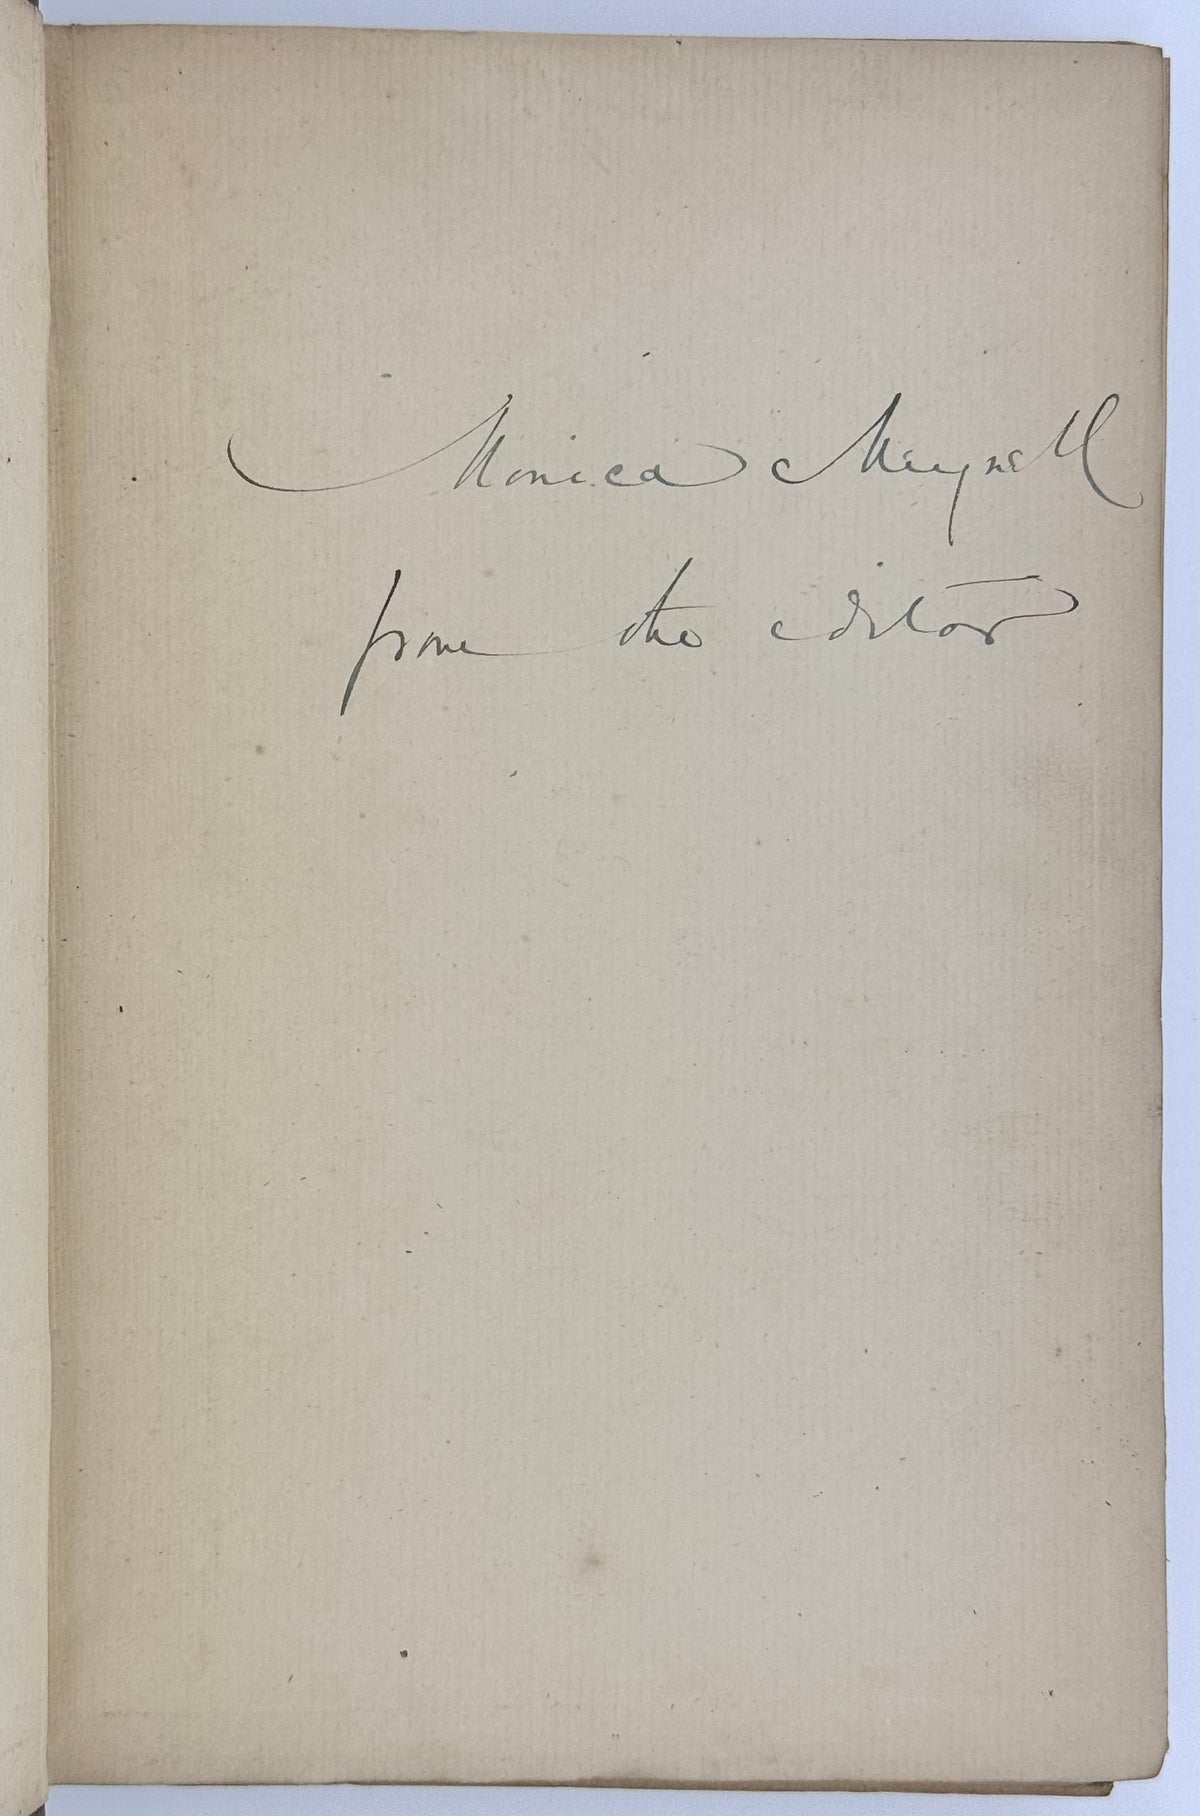 Monica Meynell
from the editor